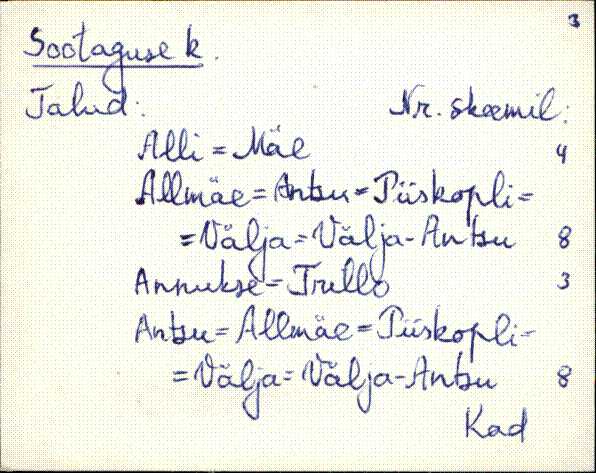 3
Sootaguse k.
Talud: Nr. skeemil:
Alli = Mäe 4
Allmäe = Antsu = Piiskopli =
= Välja = Välja-Antsu 8
Annukse = Trullo 3
Antsu = Allmäe = Piiskopli =
= Välja = Välja-Antsu 8
Kad